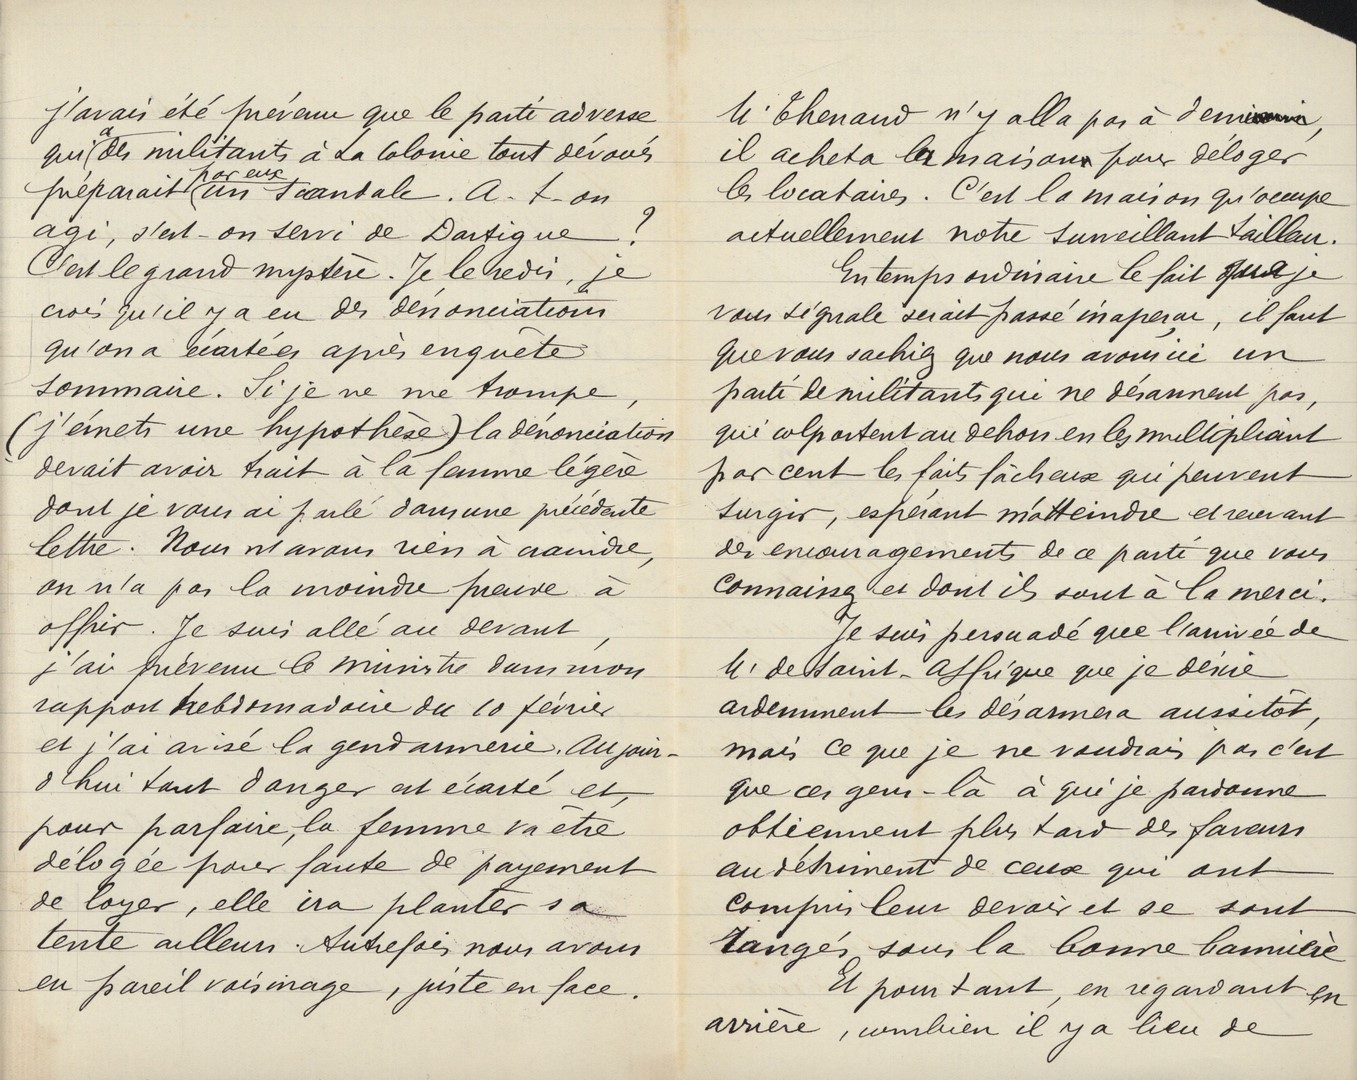 j'avais été prévenu que le parti adverse
qui a des militants à la Colonie tout dévoués
préparait par eux un scandale. A-t-on
agi, s'est-on servi de Dartigue ?
C'est le grand mystère. Je le redis, je
crois qu'il y a eu des dénonciations
qu'on a écartées après enquête
sommaire. Si je ne me trompe,
(j'émets une hypothèse) la dénonciation
devait avoir trait à la femme légère
dont je vous ai parlé dans une précédente
lettre. Nous n'avons rien à craindre,
on n'a pas la moindre preuve à
offrir. Je suis allé au devant,
j'ai prévenu le Ministre dans mon
rapport hebdomadaire du 10 février
et j'ai avisé la gendarmerie. Aujour-
d'hui tout danger est écarté et,
pour parfaire, la femme va être
délogée pour faute de payement
de loyer, elle ira planter sa
tente ailleurs. Autrefois nous avons
eu pareil voisinage, juste en face.
Mr Thenaud n'y alla pas à demi,
il acheta la maison pour déloger
les locataires. C'est la maison qu'occupe
actuellement notre surveillant tailleur.
En temps ordinaire le fait que je
vous signale serait passé inaperçu, il faut
que vous sachiez que nous avons ici un
parti de militants qui ne désarment pas,
qui colportent au dehors en les multipliant
par cent les faits fâcheux qui peuvent
surgir, espérant m'atteindre et recevant
des encouragements de ce parti que vous
connaissez et dont ils sont à la merci.
Je suis persuadé que l'arrivée de
Mr de Saint-Affrique que je désire
ardemment les désarmera aussitôt,
mais ce que je ne voudrais pas c'est
que ces gens-là à qui je pardonne
obtiennent plus tard des faveurs
au détriment de ceux qui ont
compris leur devoir et se sont
rangés sous la bonne bannière
Et pourtant, en regardant en
arrière, combien il y a lieu de